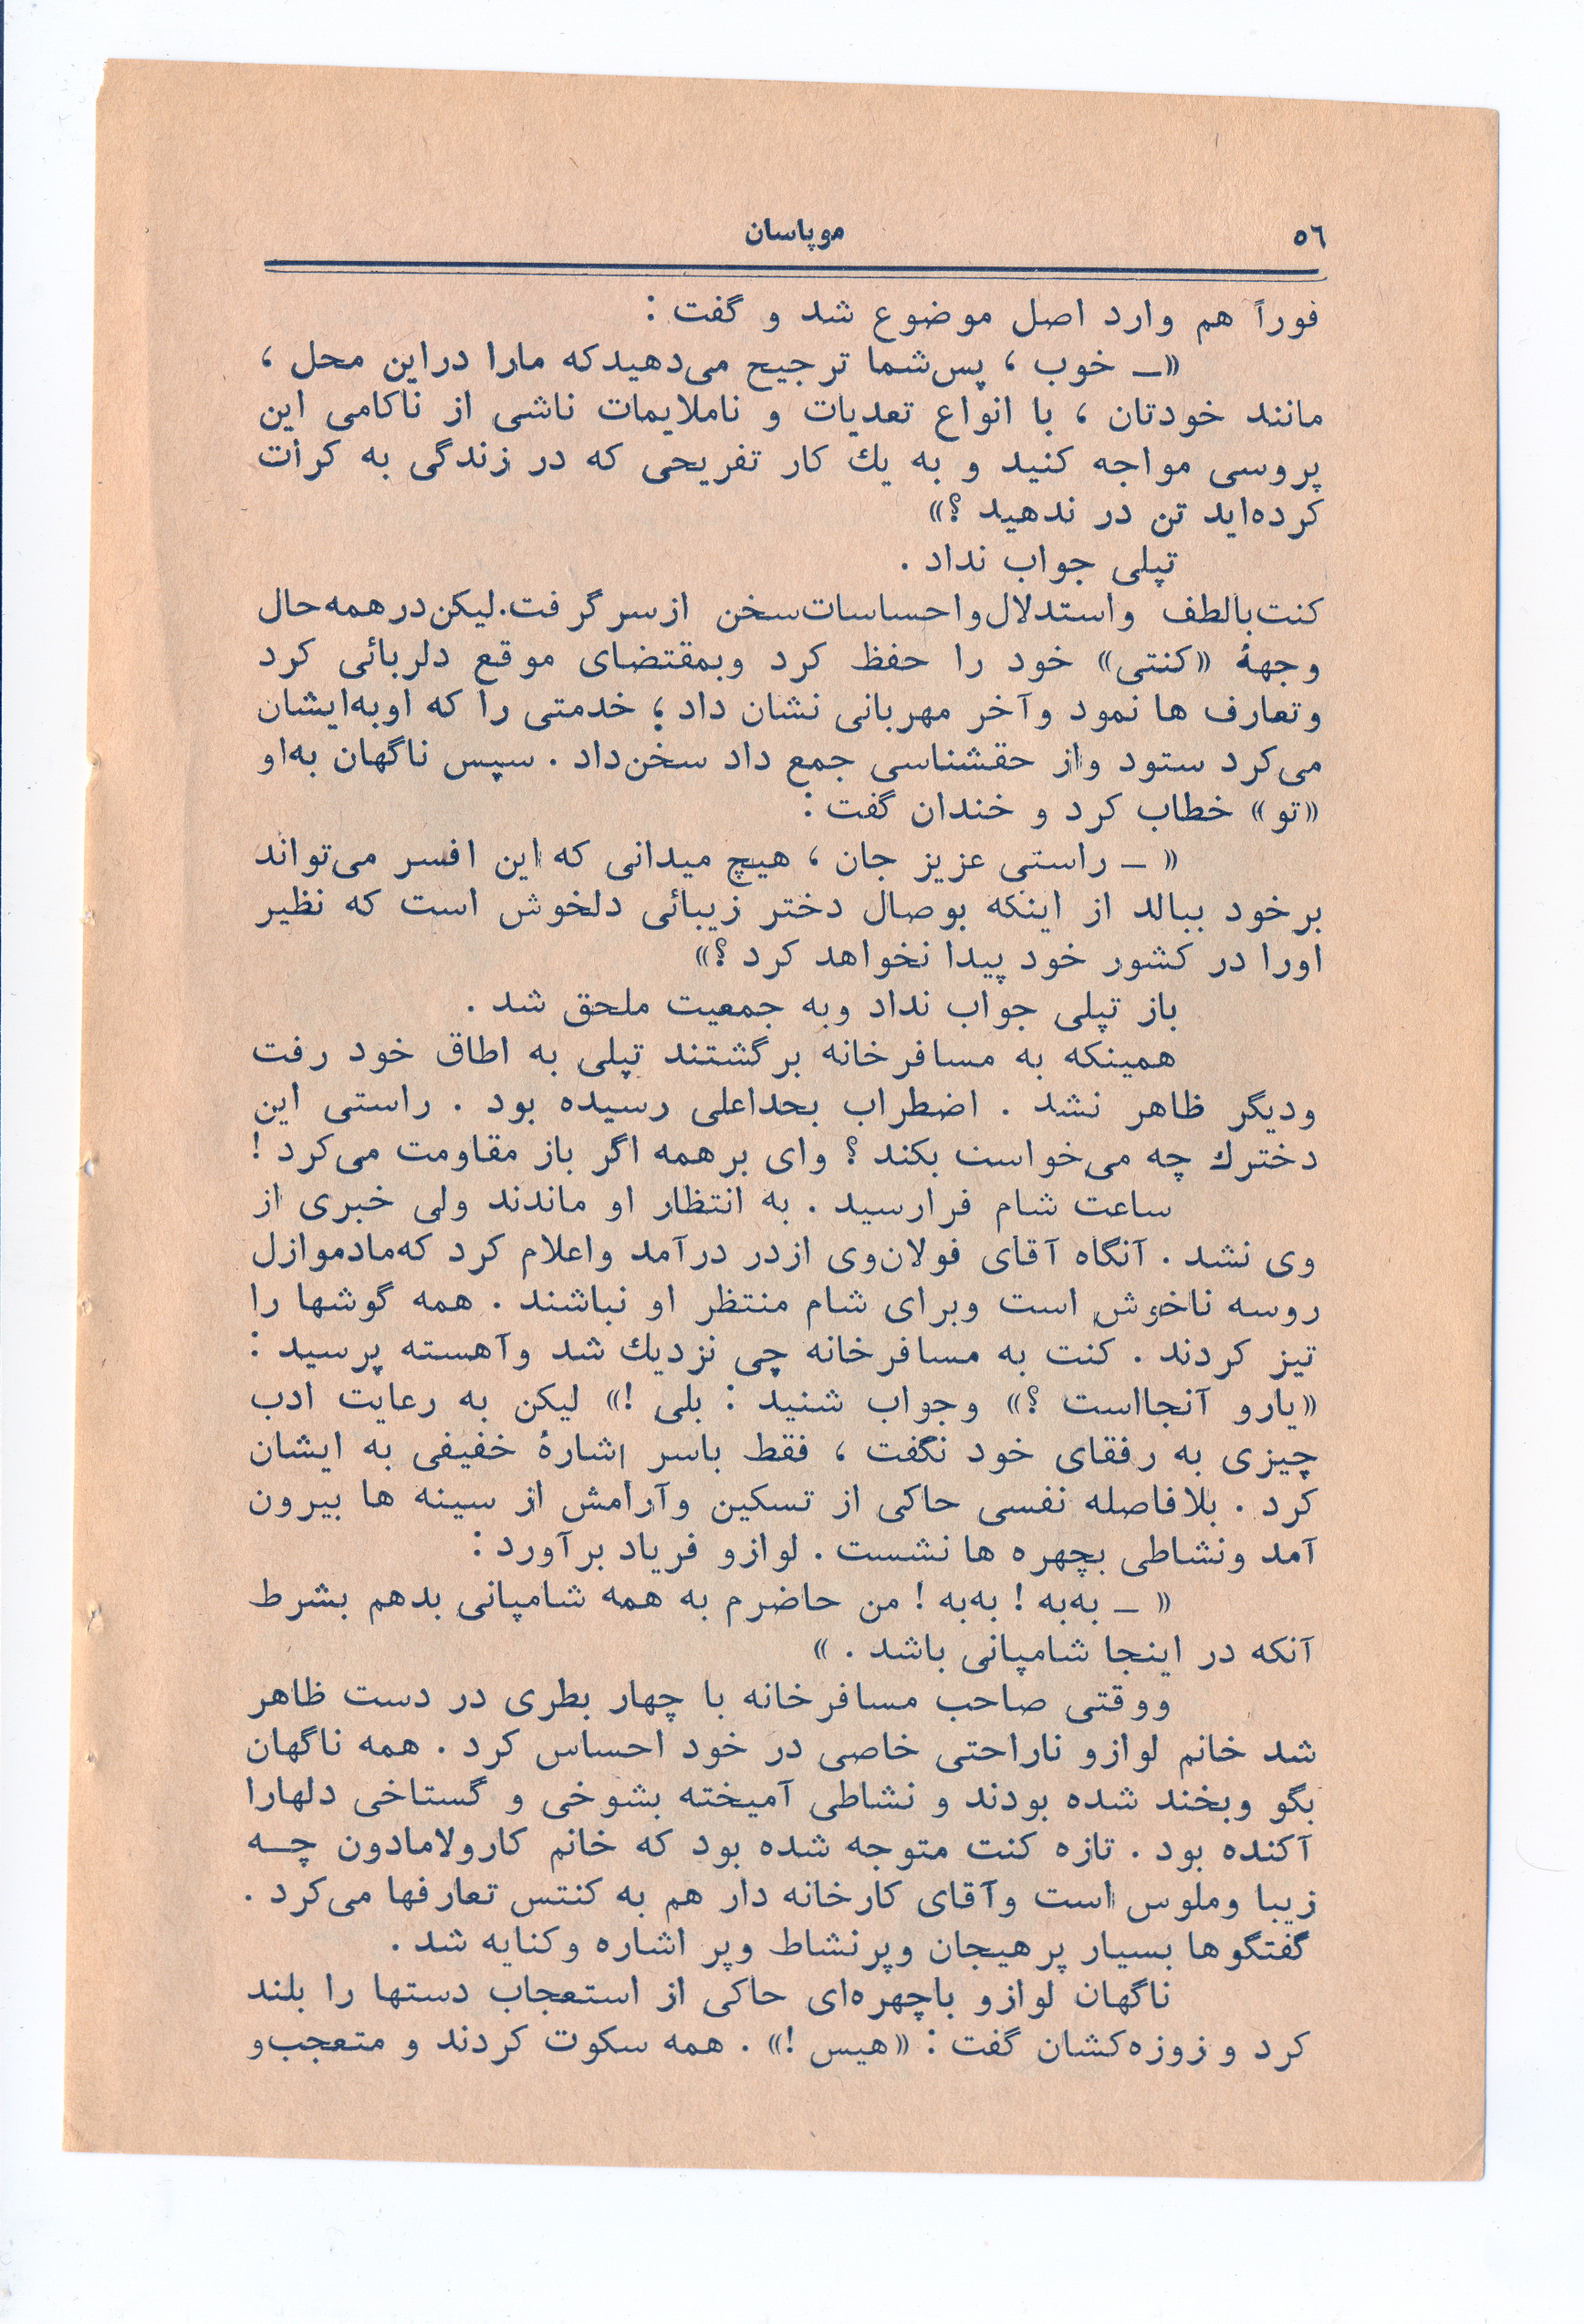 ٥٦
موپاسان
فوراً هم وارد اصل موضوع شد و گفت :
«ـ خوب ، پس‌شما ترجیح می‌دهیدکه مارا دراین محل ،
مانند خودتان ، با انواع تعدیات و ناملایمات ناشی از ناکامی این
پروسی مواجه کنید و به یك کار تفریحی که در زندگی به کرات
کرده‌اید تن در ندهید ؟»
تپلی جواب نداد .
کنت‌بالطف واستدلال‌واحساسات‌سخن ازسرگرفت.لیکن‌درهمه‌حال
وجههٔ «کنتی» خود را حفظ کرد وبمقتضای موقع دلربائی کرد
وتعارف ها نمود وآخر مهربانی نشان داد ؛ خدمتی را که اوبه‌ایشان
می‌کرد ستود واز حقشناسی جمع داد سخن‌داد . سپس ناگهان به‌او
«تو» خطاب کرد و خندان گفت :
« ـ راستی عزیز جان ، هیچ میدانی که این افسر می‌تواند
برخود ببالد از اینکه بوصال دختر زیبائی دلخوش است که نظیر
اورا در کشور خود پیدا نخواهد کرد ؟»
باز تپلی جواب نداد وبه جمعیت ملحق شد .
همینکه به مسافرخانه برگشتند تپلی به اطاق خود رفت
ودیگر ظاهر نشد . اضطراب بحداعلی رسیده بود . راستی این
دخترك چه می‌خواست بکند ؟ وای برهمه اگر باز مقاومت می‌کرد !
ساعت شام فرارسید . به انتظار او ماندند ولی خبری از
وی نشد . آنگاه آقای فولان‌وی ازدر درآمد واعلام کرد که‌مادموازل
روسه ناخوش است وبرای شام منتظر او نباشند . همه گوشها را
تیز کردند . کنت به مسافرخانه چی نزدیك شد وآهسته پرسید :
«یارو آنجااست ؟» وجواب شنید : بلی !» لیکن به رعایت ادب
چیزی به رفقای خود نگفت ، فقط باسر اشارهٔ خفیفی به ایشان
کرد . بلافاصله نفسی حاکی از تسکین وآرامش از سینه ها بیرون
آمد ونشاطی بچهره ها نشست . لوازو فریاد برآورد :
« ـ به‌به ! به‌به ! من حاضرم به همه شامپانی بدهم بشرط
آنکه در اینجا شامپانی باشد . »
ووقتی صاحب مسافرخانه با چهار بطری در دست ظاهر
شد خانم لوازو ناراحتی خاصی در خود احساس کرد . همه ناگهان
بگو وبخند شده بودند و نشاطی آمیخته بشوخی و گستاخی دلهارا
آکنده بود . تازه کنت متوجه شده بود که خانم کارولامادون چـه
زیبا وملوس است وآقای کارخانه دار هم به کنتس تعارفها می‌کرد .
گفتگوها بسیار پرهیجان وپرنشاط وپر اشاره وکنایه شد .
ناگهان لوازو باچهره‌ای حاکی از استعجاب دستها را بلند
کرد و زوزه‌کشان گفت : «هیس !» . همه سکوت کردند و متعجب‌و